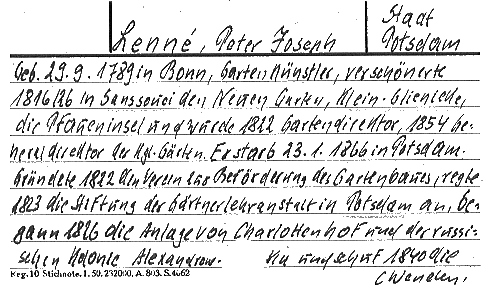 Lenné, Peter Joseph
Stadt
Potsdam
Geb. 29.9.1789 in Bonn, Gartenkünstler, verschönerte
1816/26 in Sanssouci den Neuen Garten, Klein-Glienicke,
die Pfaueninsel und wurde 1822 Gartendirektor, 1854 Ge-
neraldirektor der Kgl. Gärten. Er starb 23.1.1866 in Potsdam.
Gründete 1822 den Verein zur Beförderung des Gartenbaues, regte
1823 die Stiftung der Gärtnerlehranstalt in Potsdam an, be-
gann 1826 die Anlage von Charlottenhof und der russi-
schen Kolonie Alexandrow- ka und schuf 1840 die
(wenden.
Reg. 10 Stichnote. 1. 50. 232000. A. 803. S. 4662